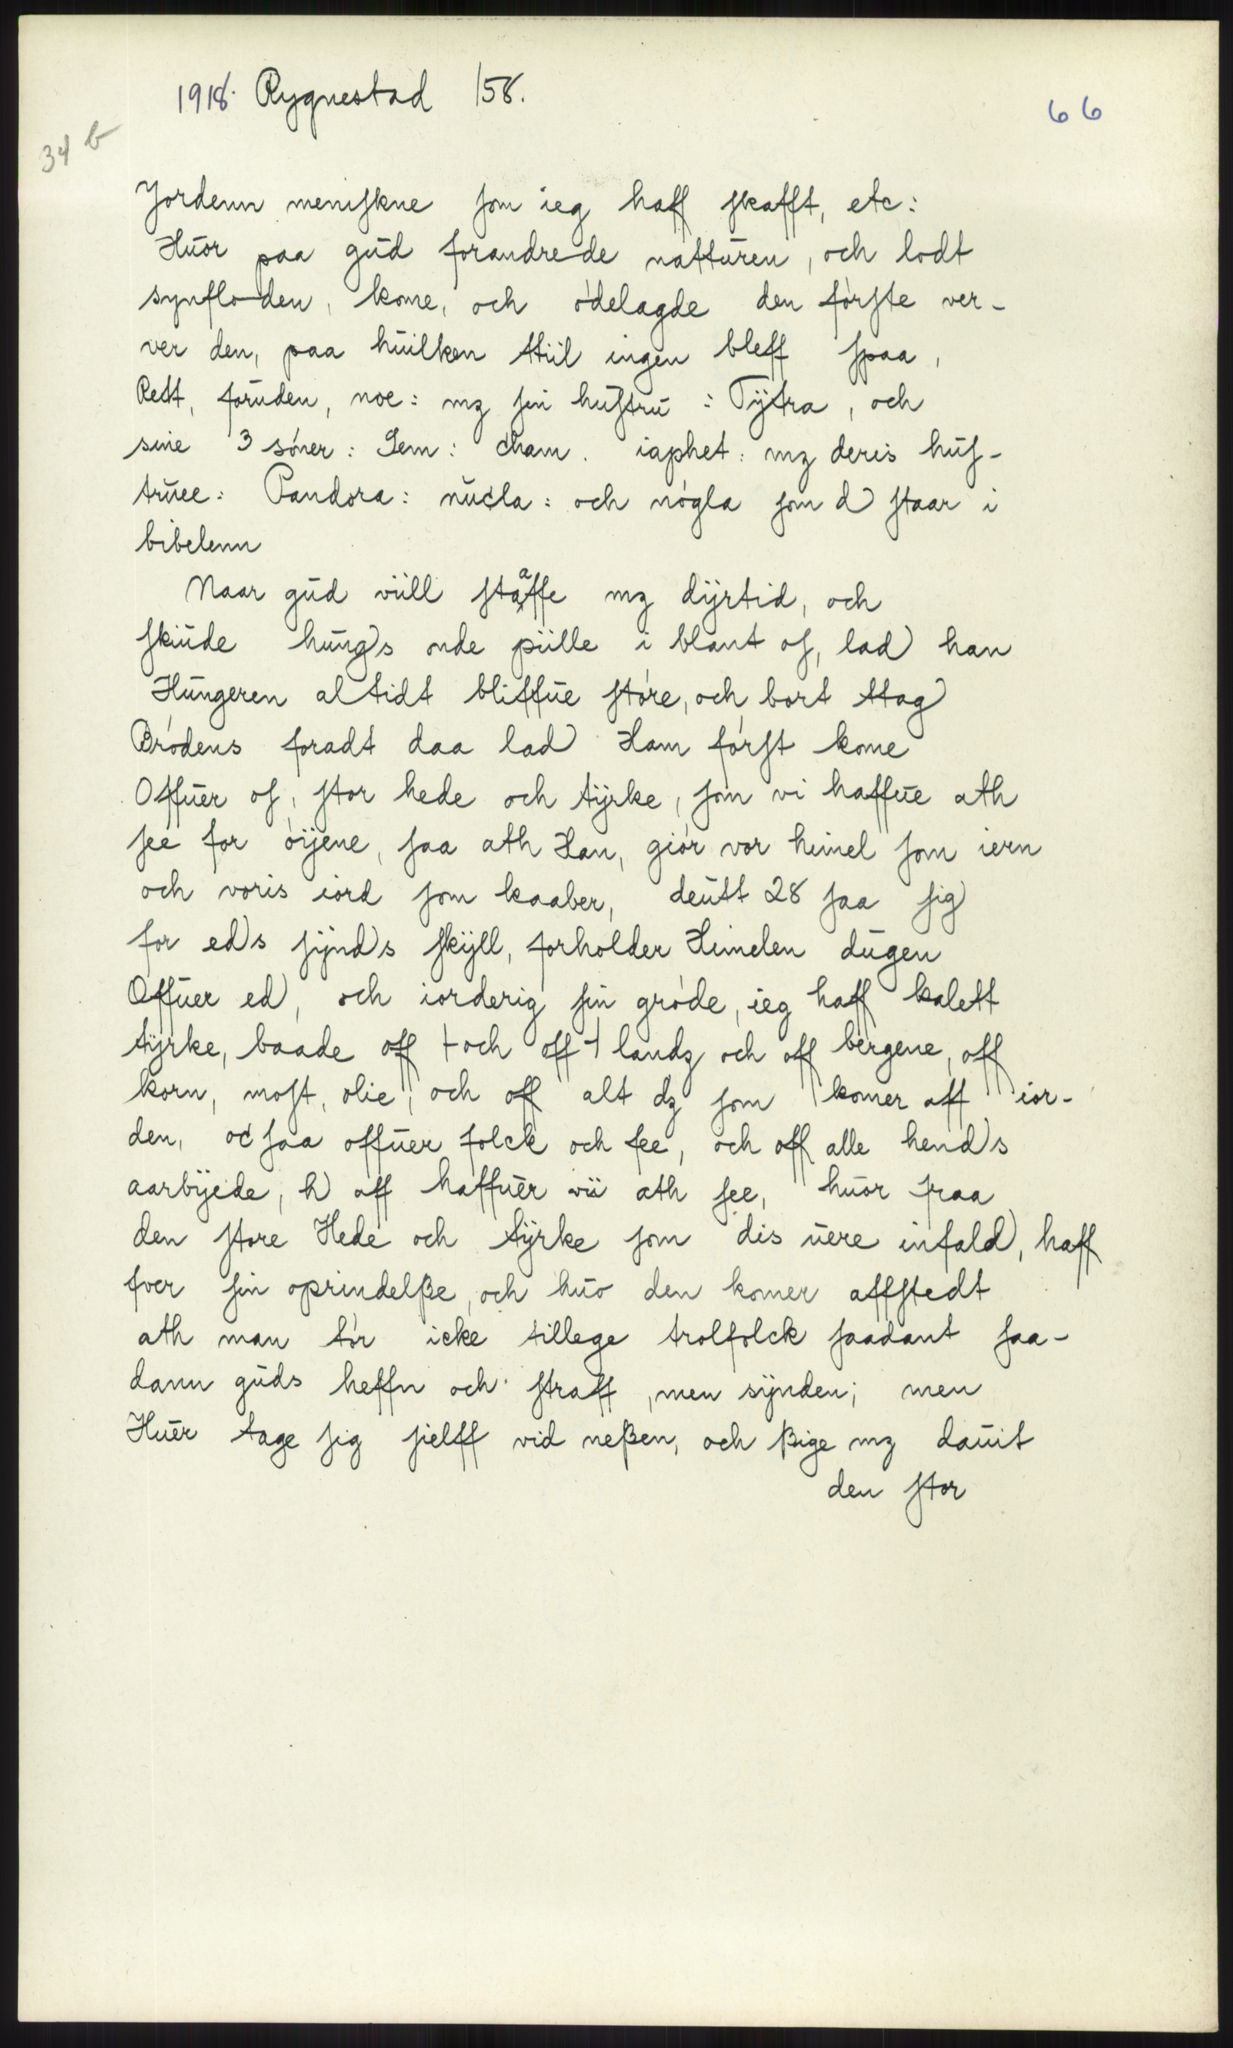 1918. Rygnestad 158.
66
34 b
Jordenn meniſkne ſom ieg haff ſkafft, etc:
Huor paa gud forandrede natturen, och lodt
synfloden, kome, och ódelagde den fórſte ver-
ver den, paa huilken ttiil ingen bleff ſpaa,
Rett, foruden, noe: mz ſin huſtru: Tÿtra, och
sine 3 sóner: Sem: cham. iaphet: mz deris huſ-
truee: Pandora: nucla: och nógla ſom d) ſtaar i
bibelenn
Naar gud viill ſtaffe mz dÿrtid, och
ſkiude hung)s onde piille i blant oſ, lad) han
Hungeren altidt bliffue ſtóre, och bort ttag)
Bródens foradt daa lad) Ham fórſt kome
Offuer oſ, ſtor hede och tÿrke, ſom vi haffue ath
ſee for óijene, ſaa ath Han, giór vor himel ſom iern
och voris iórd ſom kaaber, deutt 28 ſaa ſig)
for ed)s ſÿnd)s ſkÿll, forholder Himelen dugen
Offuer ed), och iorderig ſin gróde, ieg haff kalett
tÿrke, baade off + och off + landz och off bergene, off
korn, moſt, olie, och off alt dz ſom komer aff ior-
den, oc ſaa offuer folck och fee, och off alle hend)s
aarbÿede, h) aff haffuer vii ath ſee, huor fraa
den ſtore Hede och tÿrke ſom dis uere infald), haff
fver ſin oprindelße, och huo den komer affſtedt
ath man tór icke tillege trolfolck ſaadant ſaa-
dann guds heffn och ſtraff, men sÿnden; men
Huer tage ſig ſielff vid neßen, och ßige mz dauit
den ſtor